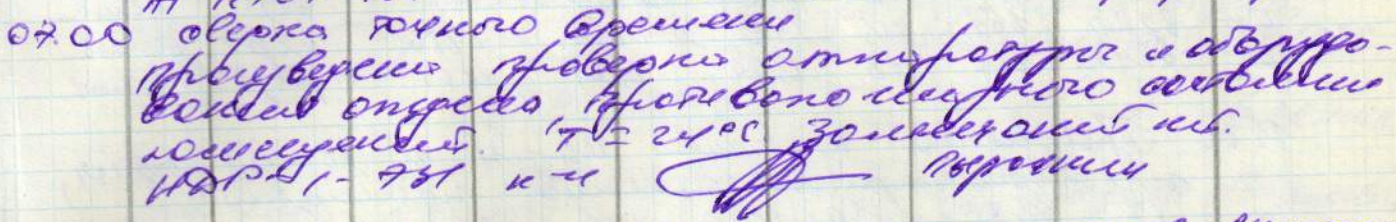 07.00 сверка точного времени
произведена проверка аппаратуры и оборудо-
вания отдела, противопожарного состояния
помещений. T = 24°C Замечаний нет.